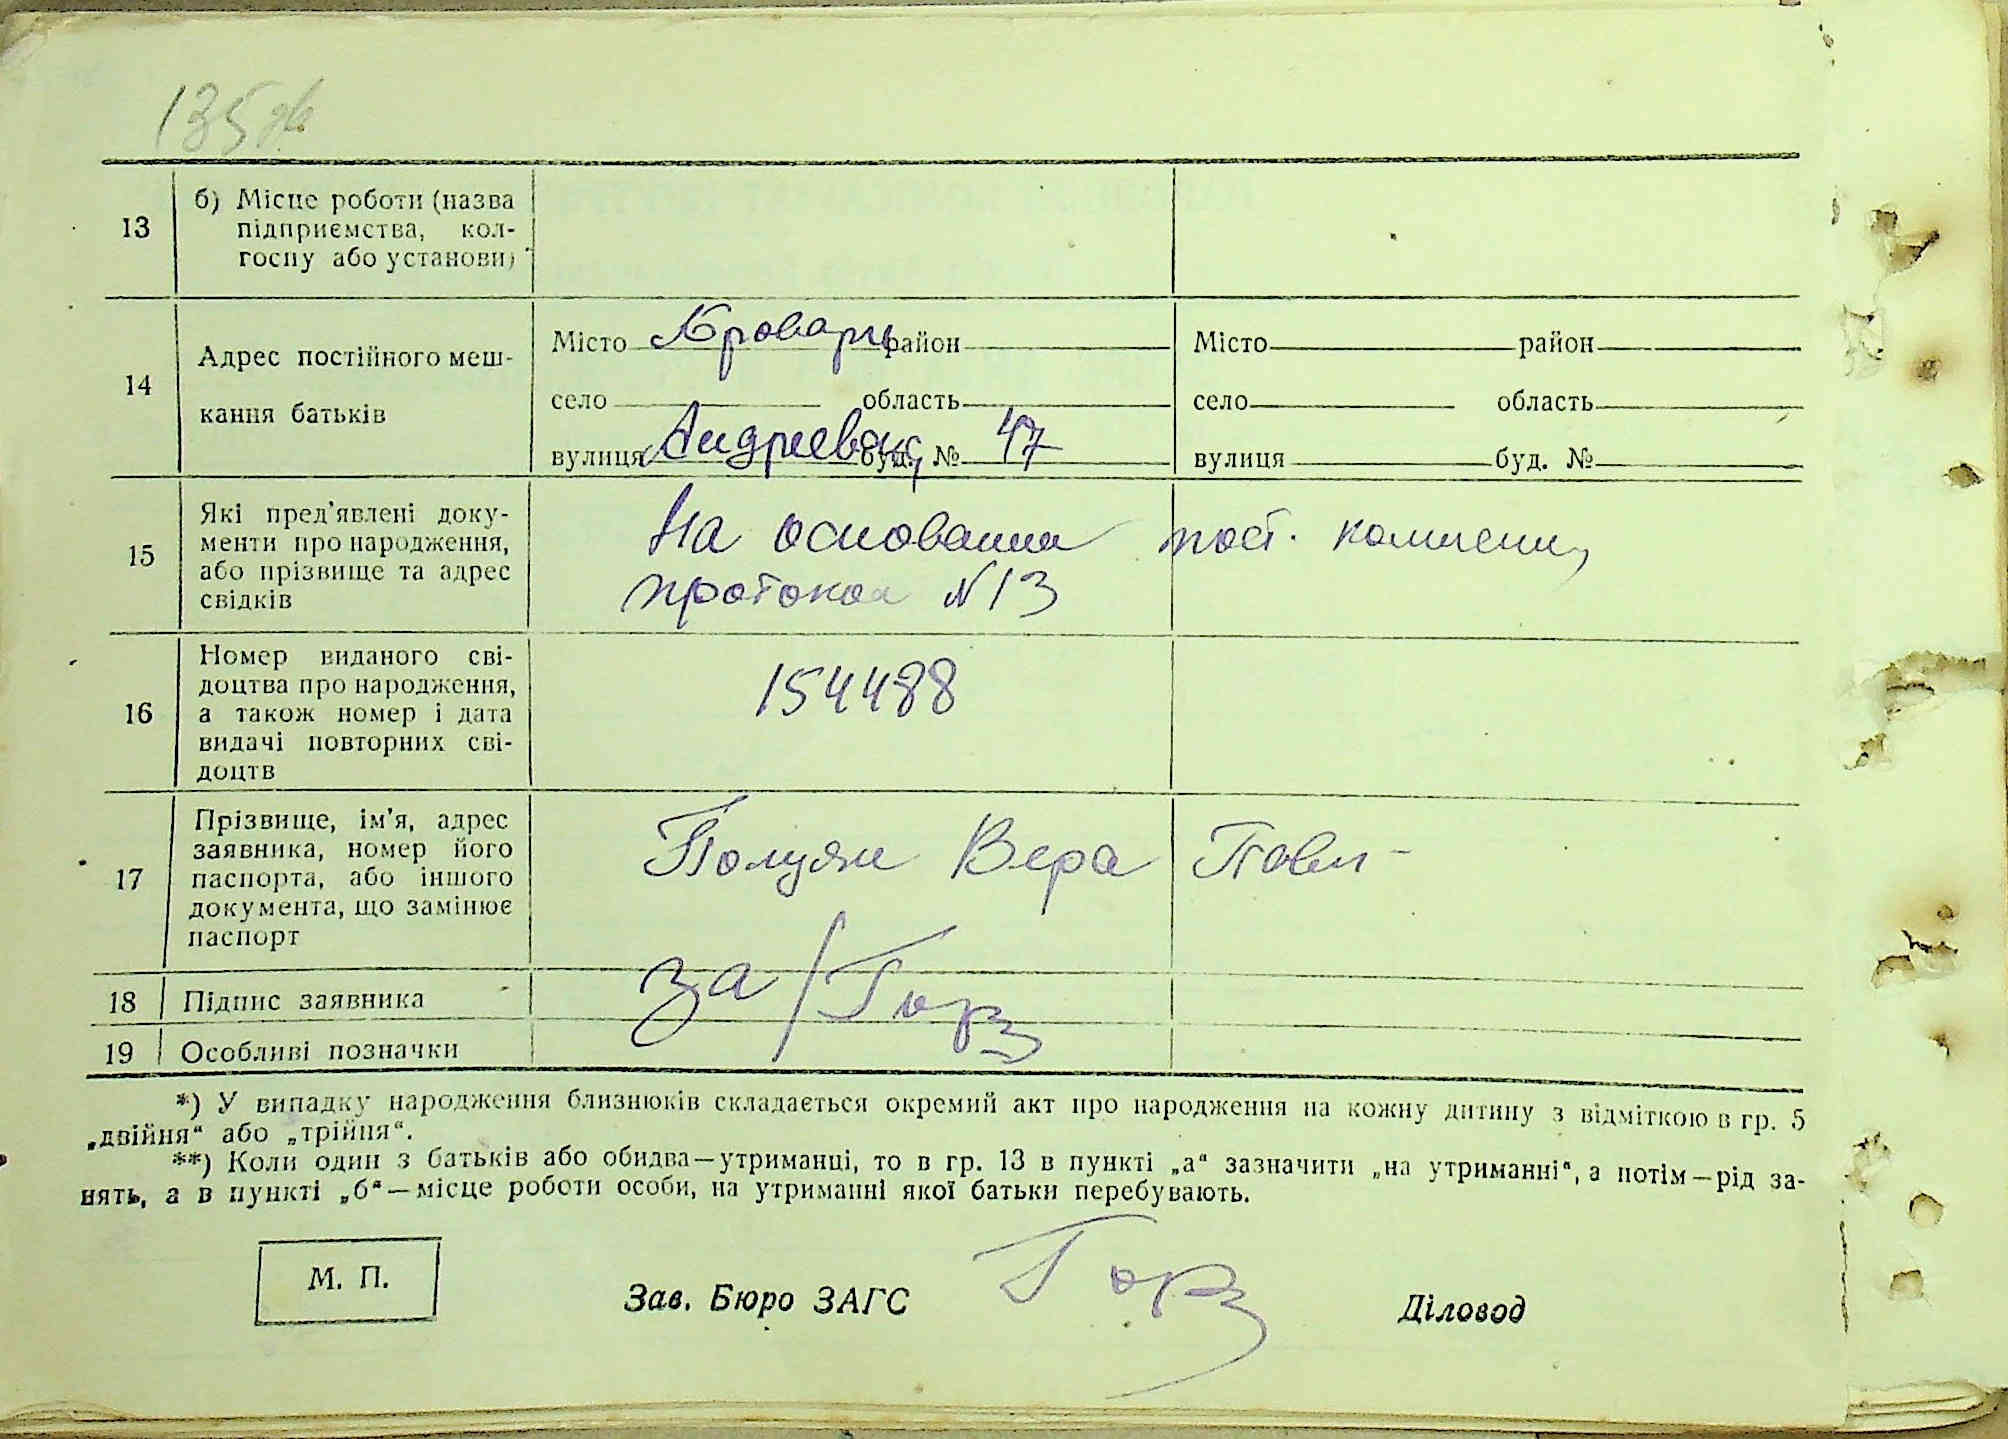 135
13
б) Місце роботи (назва
підприємства, кол-
госпу або установи)
14
Адрес постійного меш-
кання батьків
Місто Бровары район
село область
вулиця Андреевск, буд. № 47
Місто район
село область
вулиця буд. №
15
Які пред'явлені доку-
менти про народження,
або прізвище та адрес
свідків
На основании пост. комисии,
протокол N 13
16
Номер виданого сві-
доцтва про народження,
а також номер і дата
видачі повторних сві-
доцтв
154488
17
Прізвище, ім'я, адрес
заявника, номер його
паспорта, або іншого
документа, що замінює
паспорт
Полуян Вера Павл-
18
Підпис заявника
за / Горз
19
Особливі позначки
*) У випадку народження близнюків складається окремий акт про народження на кожну дитину з відміткою в гр. 5
„двійня“ або „трійня“.
**) Коли один з батьків або обидва—утриманці, то в гр. 13 в пункті „а“ зазначити „на утриманні“, а потім—рід за-
нять, а в пункті „б“—місце роботи особи, на утриманні якої батьки перебувають.
М. П.
Зав. Бюро ЗАГС Горз
Діловод